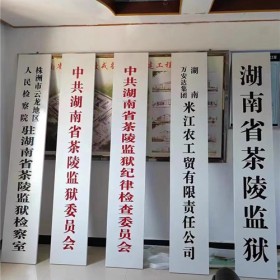 湖南省茶陵监狱
湖南
万安达集团
米江农工贸有限责任公司
中共湖南省茶陵监狱纪律检查委员会
中共湖南省茶陵监狱委员会
株洲市云龙地区
人民检察院
驻湖南省茶陵监狱检察室